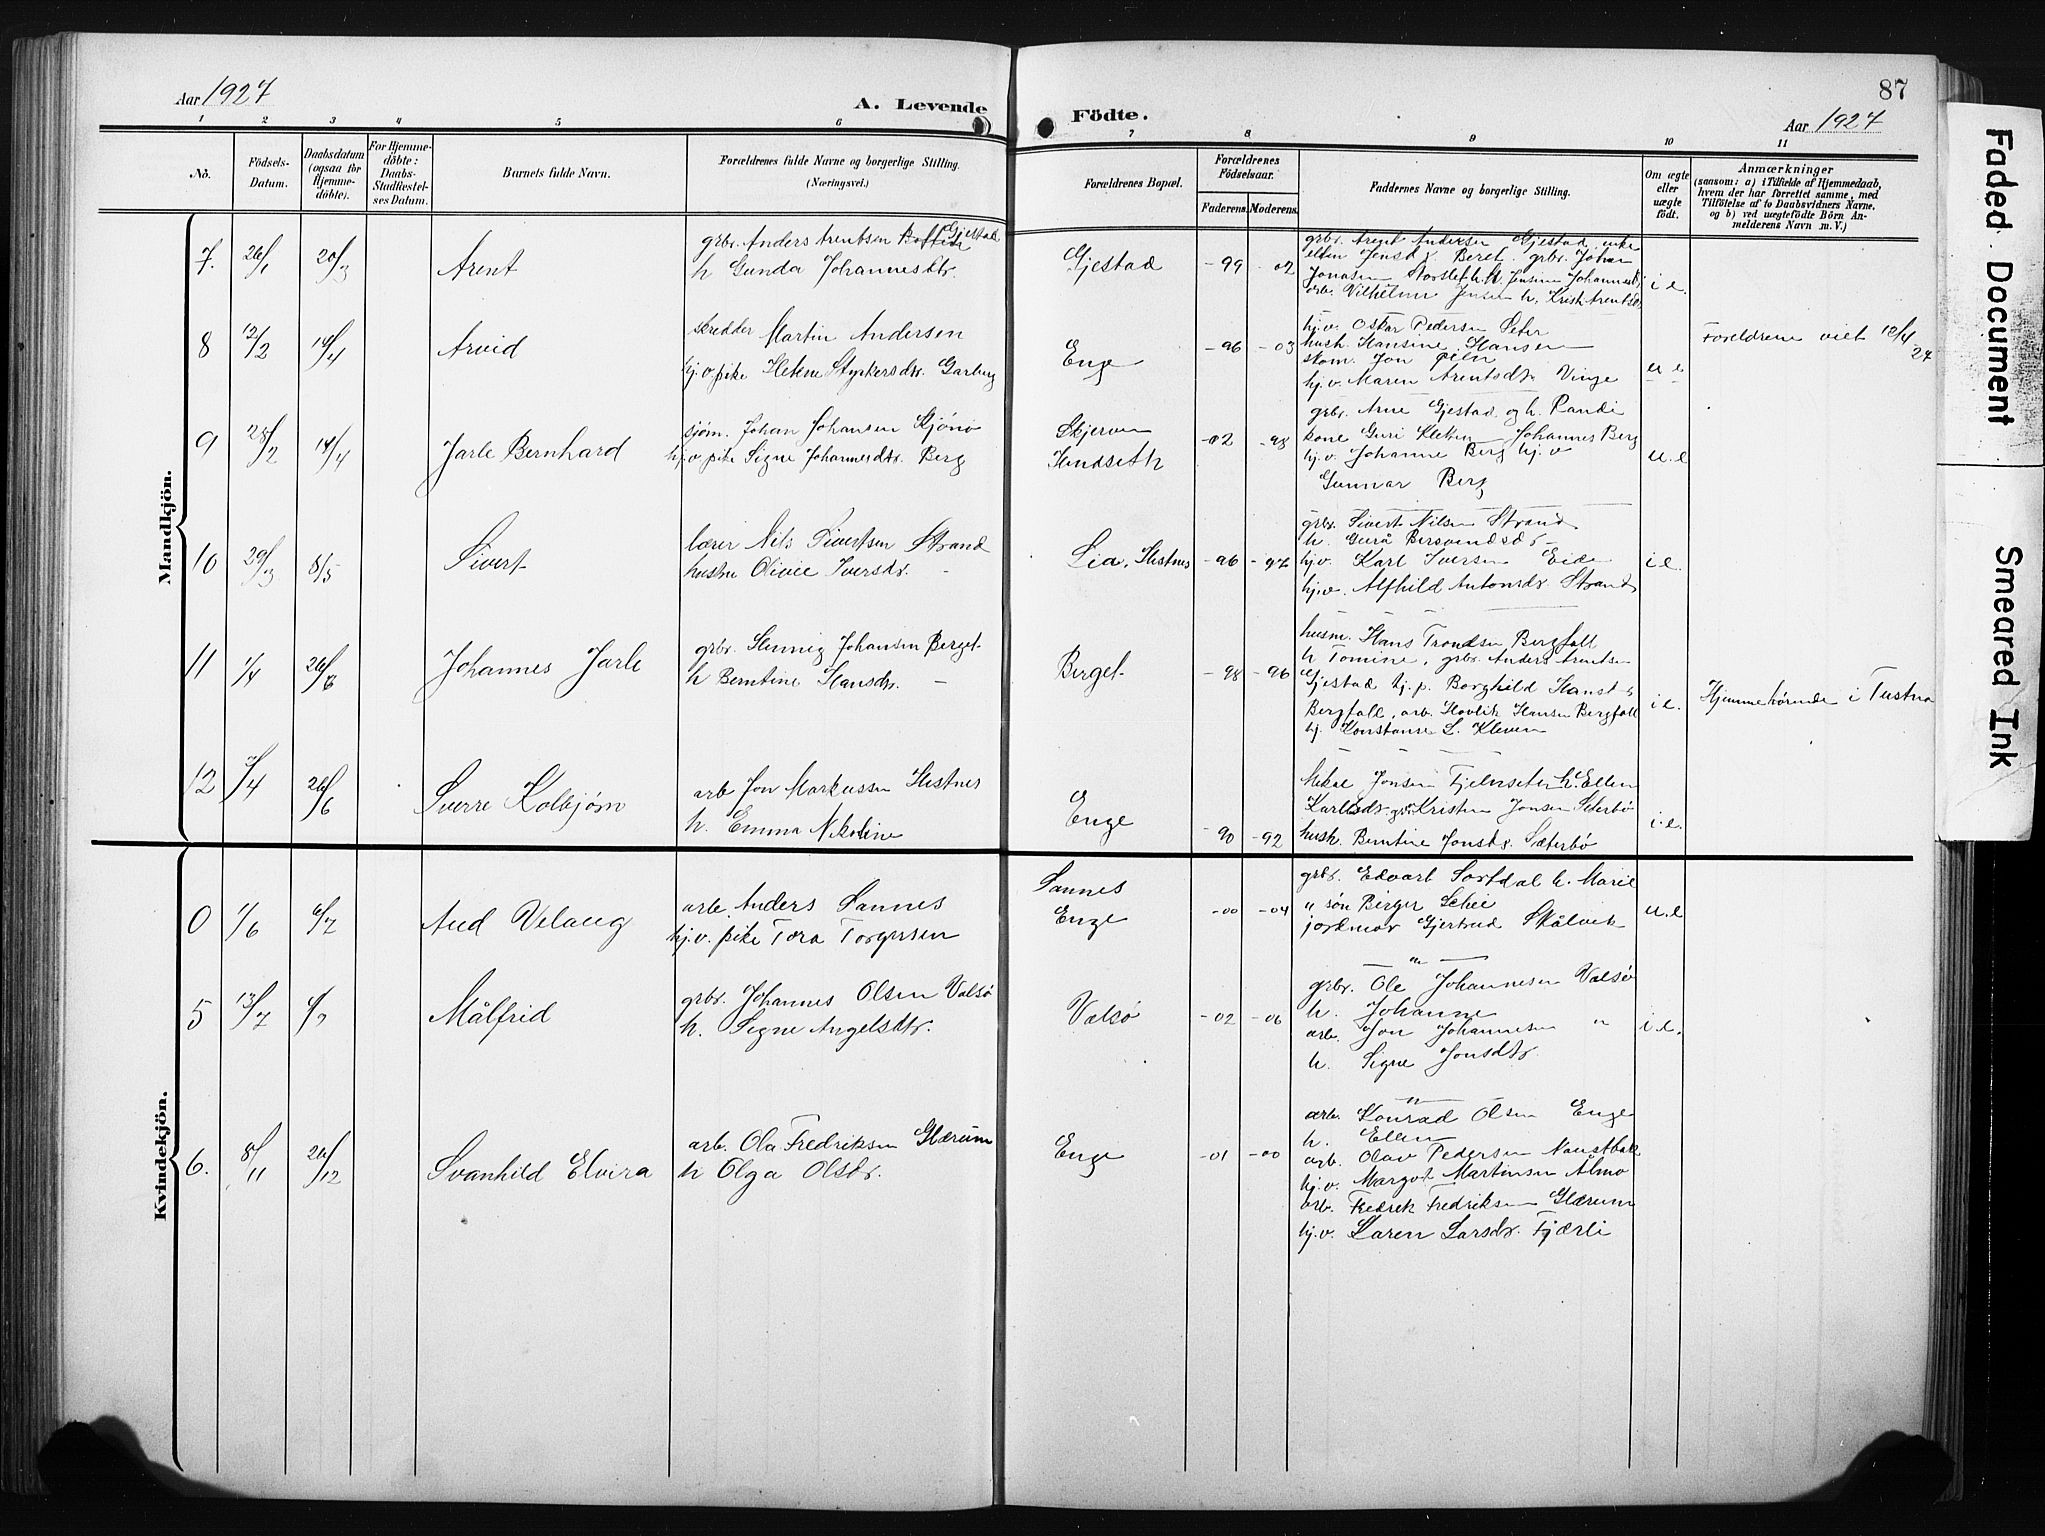 Aar 1927
A. Levende
Födte.
87
Aar 1927
1 2 3 4 5 6 7 8 9 10 11
No.
Födsels-
Datum.
Daabsdatum
(ogsaa for
Hjemme-
døbte).
For Hjemme-
døbte:
Daabs-
Stadfæstel-
ses Datum.
Barnets fulde Navn.
Forældrenes fulde Navne og borgerlige Stilling.
(Næringsvei.)
Forældrenes Bopæl.
Forældrenes
Födselsaar.
Faderens. Moderens.
Faddernes Navne og borgerlige Stilling.
Om ægte
eller
uægte
födt.
Anmærkninger
(saasom: a) i Tilfælde af Hjemmedaab,
hvem der har forrettet samme, med
Tilföielse af to Daabsvidners Navne,
og b) ved uægtefödte Börn An-
melderens Navn m. V.)
Mandkjön.
7. 26/1 20/3 Arent
grbr. Anders Arentsen Gjestad
h Gunda Johannesdtr.
Gjestad -99 -02
grbr. Arent Andersen Gjestad, enke
Ellen Jensdtr. Beret, grbr. Johan
Jonasen h. Jensine Johannesdtr
arb. Vilhelm Jensen h. Krist. Arentsdtr
i e.
8 12/2 14/4 Arvid
skredder Martin Andersen
hj.v. pike Helene Styrkersdtr. Garberg
Enge -96 -03
hj.v. Oskar Pedersen Seter
hush. Hansine Hansen
skom. Jon
hj.v. Maren Arentsdtr. Vinge
u e
Foreldrene viet 12/4
27
9 28/2 14/4 Jarle Bernhard
sjøm. Johan Johansen Skjøno
hj.v. pike Signe Johannesdtr. Berg
Skjerven
Handseth
-02 -98
grbr. Arne Gjestad og h. Randi
kone Guri Kletten Johannes Berg
hj.v. Johanne Berg hj.v
Gunnar Berg
u.e
10 29/3 8/5 Sivert
lærer Nils Sivertsen Strand
hustru Olivie Iversdtr. -
Lia, Hestnes -96 -97
grbr. Sivert Nilsen Strand
h. Gurå
hj.v. Karl Iversen Eide
hj.v. Alfhild Antonsdr. Strand
i e.
11 1/4 26/6 Johannes Jarle
grbr. Henning Johansen Berget
h Berntine Hansdtr. -
Berget -98 -96
husm. Hans Trondsen Bergfall
h Tomine, grbr. Anders Arentsen
Gjestad hj.p. Borghild Hansd.
Bergfall, arb. Havlik Hansen Bergfall
hj. Konstanse L. Kleven
i e.
Hjemmehørende i Tustna
12 7/4 26/6 Sverre Kolbjørn
arb Jon Markussen Hestnes
h. Emma Nikoline
Enge -90 -92
Mikal Jonsen Fjelnseter h. Ellen
Karlsdr. grbr. Kristen Jonsen Seterbø
hush. Berntine Jonsdtr. Sæterbø
i.e.
Kvindekjön.
0 1/6 6/7 Aud Velaug
arb. Anders Sannes
hj.v. pike Tora Torgersen
Sannes
Enge
-00 -04
grbr. Edvart Sortdal h. Marie
" søn Birger Schei
jordmor Gjertrud Skålvik
u.e
5 13/7 Målfrid
grbr. Johannes Olsen Valsø
h. Signe Angelsdtr.
Valsø -02 -06
grbr. Ole Johannesen Valsø
h. Johanne
arb. Jon Johannesen "
h. Signe Jonsdtr.
i.e.
6. 8/11 26/12 Svanhild Elvira
arb. Ola Fredriksen Glærum
h Olga Olsdtr.
Enge -01 -00
arb. Konrad Olsen Enge
h. Ellen
arb. Olav Pedersen Naustbakk
hj.v. Margot Martinsen Ålmo
arb. Fredrik Fredriksen Glærum
hj.v. Karen Larsdtr. Fjærli
Faded Document
Smeared Ink